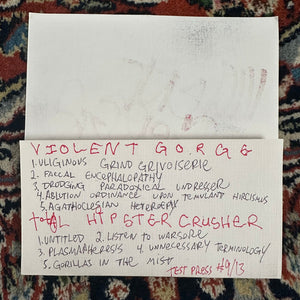 VIOLENT GORGE
1. ULIGINOUS GRIND GRIVOISERIE
2. FAECAL ENCEPHALOPATHY
3. DRUDGING PARADOXICAL UNDRESSER
4. ABLUTION ORDINANCE UPON TEMULANT HIRCISMUS
5. AGATHOCLESIAN
TOTAL HIPSTER CRUSHER
1. UNTITLED 2. LISTEN TO WARSORE
3. PLASMAPHERESIS 4. UNNECESSARY TERMINOLOGY
5. GORILLAS IN THE MIST
TEST PRESS #9/13